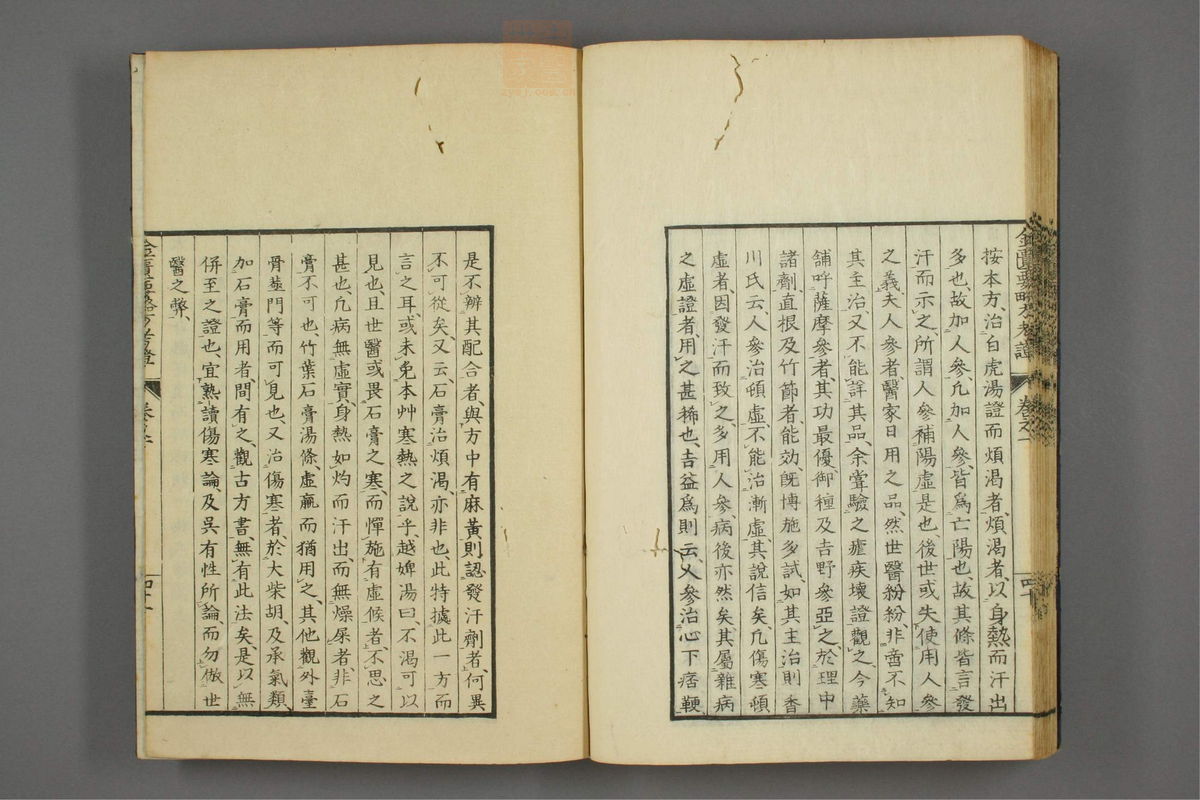 按本方、治白虎湯證而煩渴者、煩渴者、以身熱而汗出
多也、故加人參、凡加人參、皆爲亡陽也、故其條皆言發
汗而示之、所謂人參補陽虛是也、後世或失使用人參
之義、夫人參者醫家日用之品、然世醫紛紛、非啻不知
其主治、又不能詳其品、余嘗驗之瘧疾壞證觀之、今藥
舖呼薩摩參者、其功最優、御種及吉野參亞之、於理中
諸劑、直根及竹節者、能効、既博施多試、如其主治則香
川氏云、人參治頓虛、不能治漸虛、其說信矣、凡傷寒頓
虛者、因發汗而致之、多用人參、病後亦然矣、其屬雜病
之虛證者、用之甚稀也、吉益爲則云、人參治心下痞鞕
是不辨其配合者、與方中有麻黃則認發汗劑者、何異
不可從矣、又云、石膏治煩渴、亦非也、此特據此一方而
言之耳、或未免本艸寒熱之說乎、越婢湯曰、不渴可以
見也、且世醫或畏石膏之寒、而憚施有虛候者、不思之
甚也、凡病無虛實、身熱如灼而汗出、而無燥屎者、非石
膏不可也、竹葉石膏湯條、虛羸而猶用之、其他觀外臺
骨蒸門等而可見也、又治傷寒者、於大柴胡、及承氣類、
加石膏而用者、間有之、觀古方書、無有此法矣、是以無
併至之證也、宜熟讀傷寒論、及吳有性所論、而勿倣世
醫之弊、